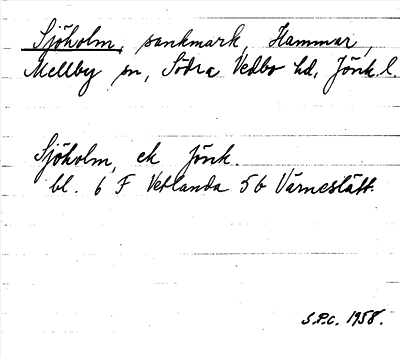 Sjöholm, sankmark, Hammar,
Mellby sn, Södra Vedbo hd, Jönk. l.
Sjöholm, ek Jönk.
bl. 6 F Vetlanda 5b Värneslätt
S.P.C. 1958.